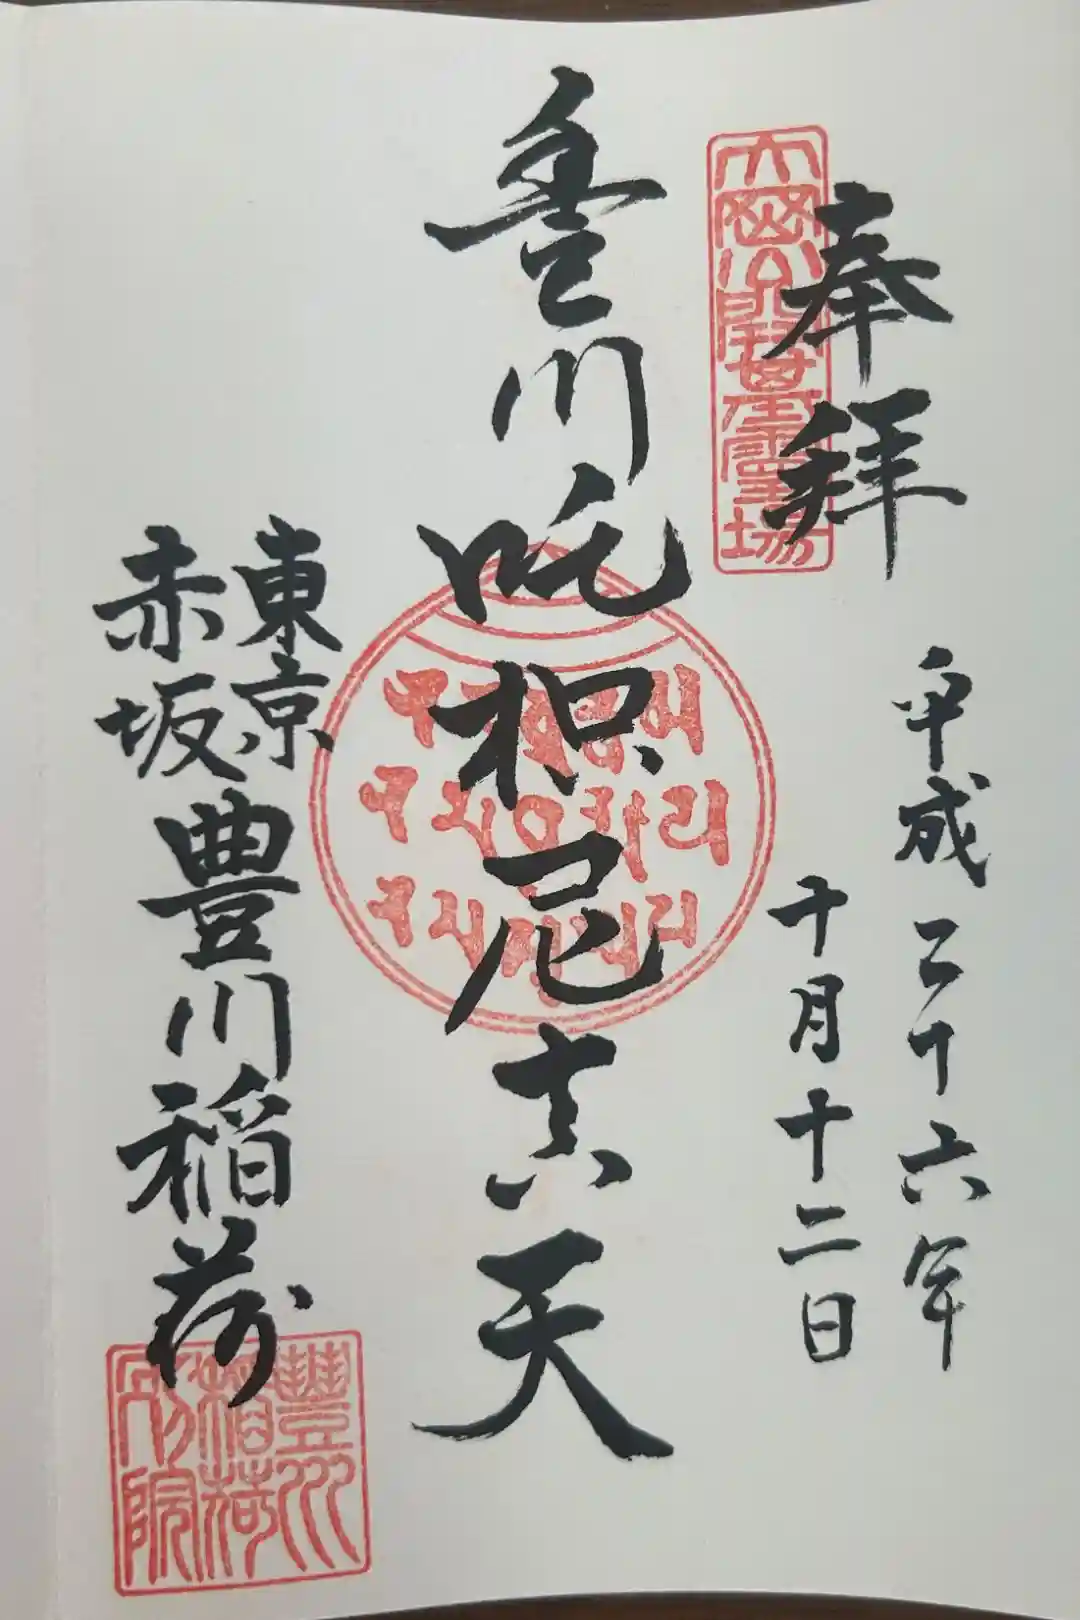 奉拝
平成二十六年
十月十二日
豊川吒枳尼真天
東京
赤坂
豊川稲荷
豐川
稲荷
別院